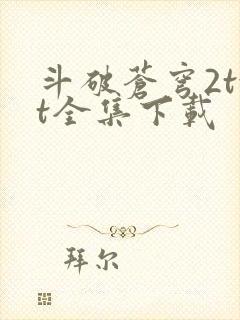 斗破蒼穹2t
t全集下載
拜尔